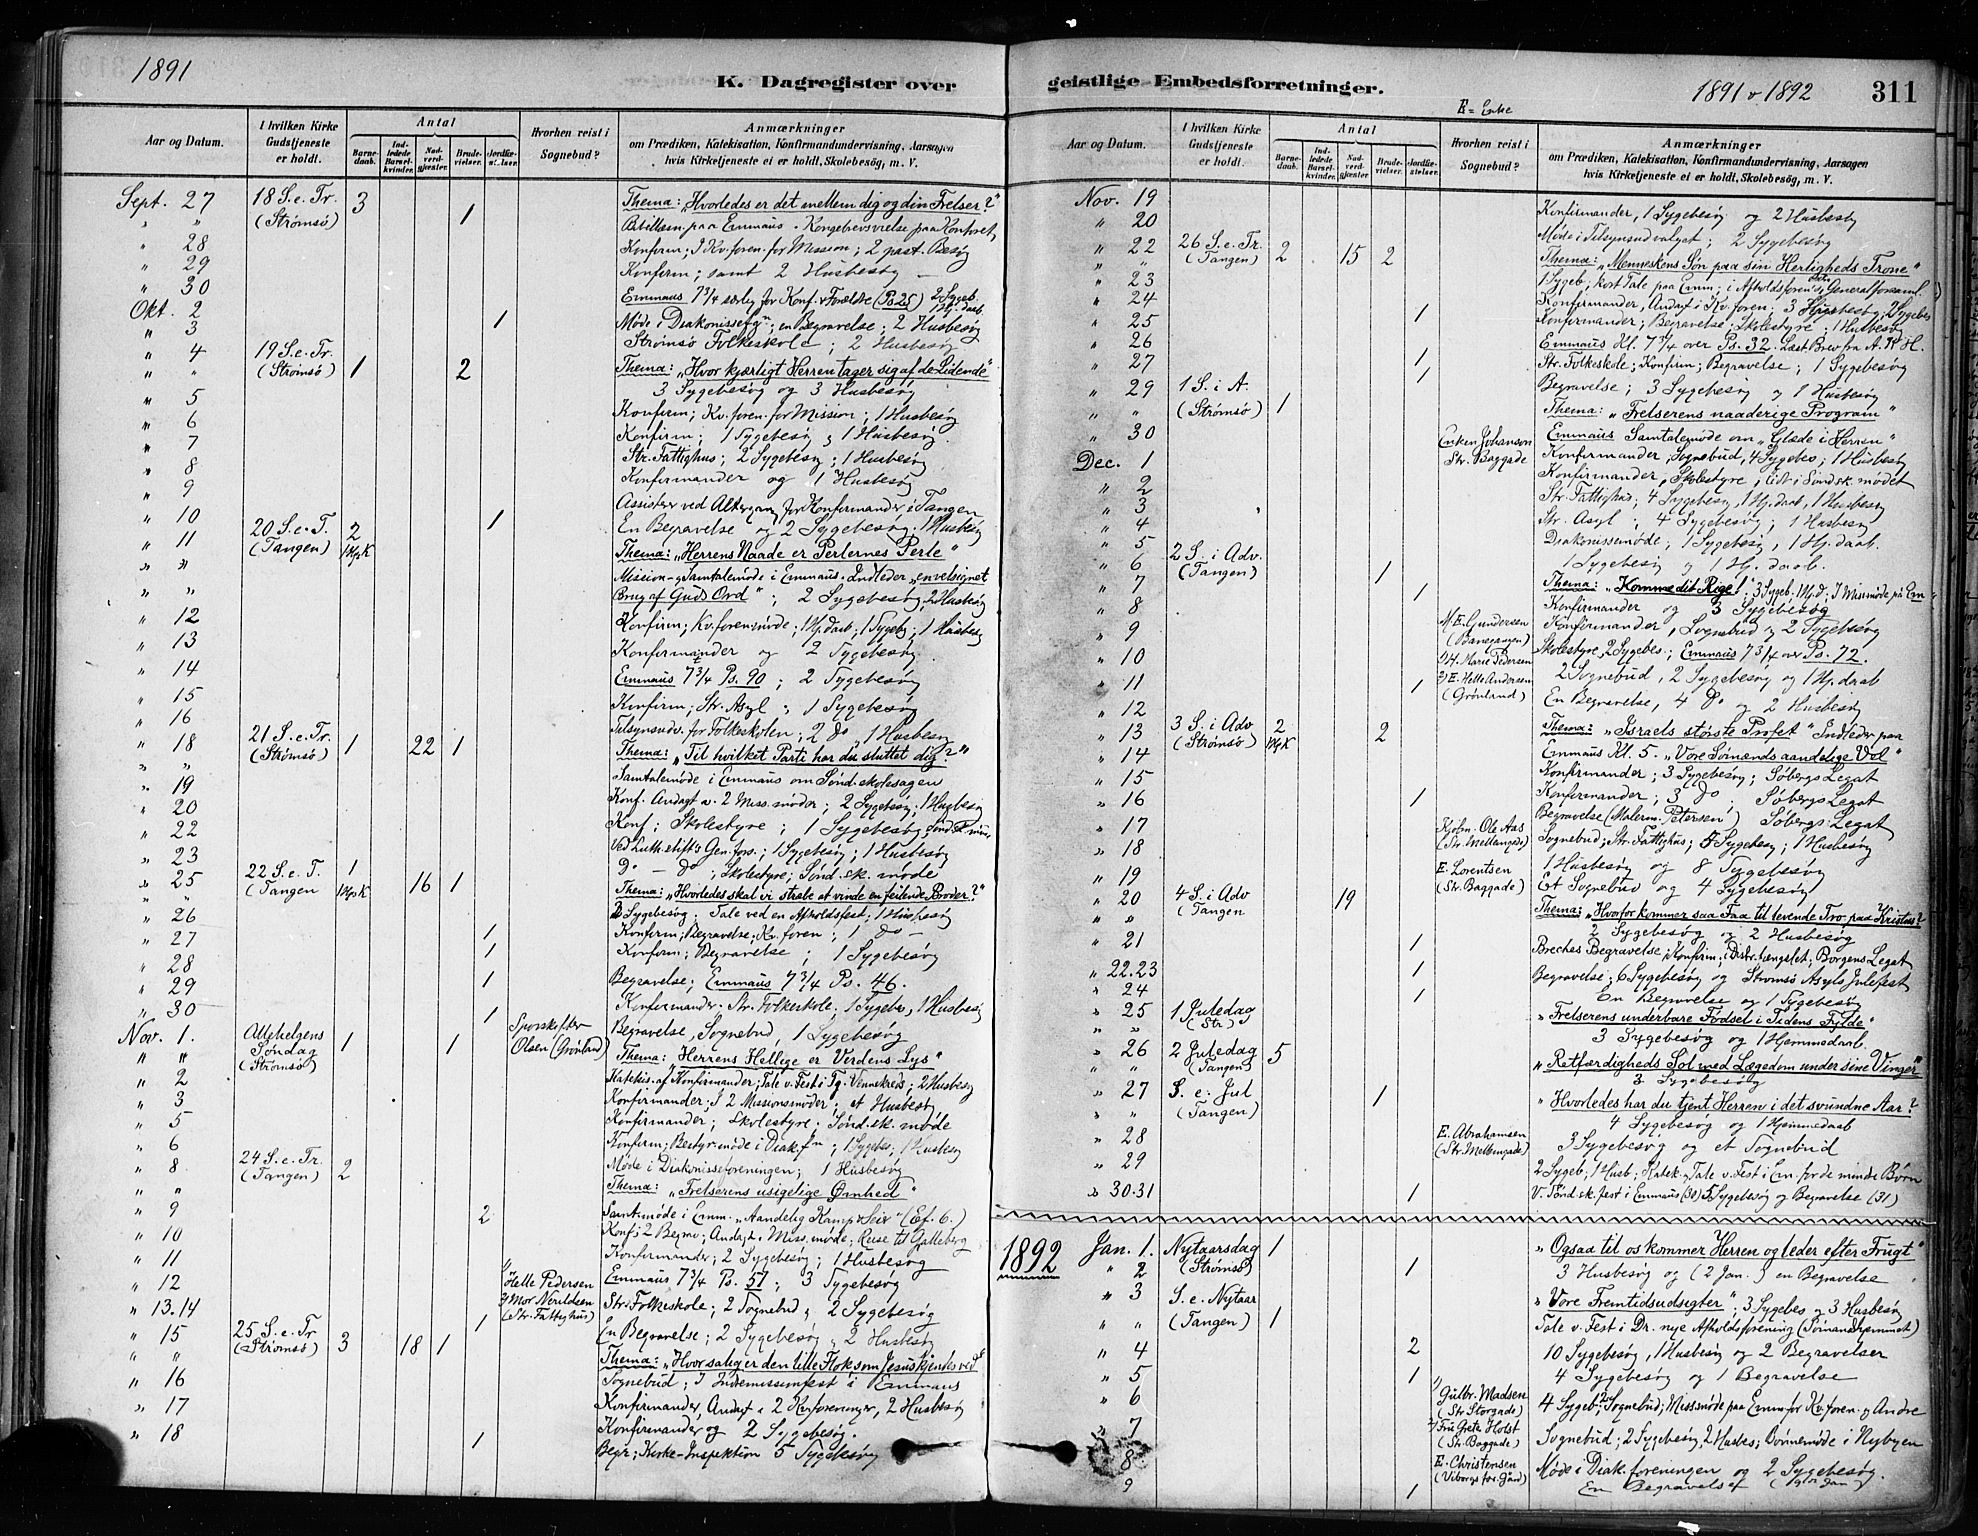 1891
K. Dagregister over
Aar og Datum.
I hvilken Kirke Gudstjeneste er holdt.
Antal
Barnedaab.
Indledede Barselkvinder.
Nadverdgjester.
Brudevielser.
Jordfæstelser.
Hvorhen reist i Sognebud?
Anmærkninger
om Prædiken, Katekisation, Konfirmandundervisning, Aarsagen
hvis Kirketjeneste ei er holdt, Skolebesög, m. V.
Sept. 27 18 S. e. Tr. (Strømsø) 3 1 Thema: "Hvorledes er det mellem dig og din Frelser?"
" " Bibellæsn. paa Emmaus
" 28 Konfirm; I Kv. foren. for Mission; 2 past. Besøg
" 29 Konfirm; samt 2 Husbesøg
" 30 Emmaus 7 3/4 særlig for Konf. & Forældre (Ps 25) 2 Sygeb.
Okt. 2 1 Møde i Diakonissefgn; en Begravelse; 2 Husbesøg
" 3 Strømsø Folkeskole; 2 Husbesøg
" 4 19 S. e. Tr. (Strømsø) 1 2 Thema: "Hvor kjærligt Herren tager sig af de Lidende"
" " 3 Sygebesøg og 3 Husbesøg
" 5 Konfirm; Kv. foren. for Mission; 1 Husbesøg
" 6 Konfirm; 1 Sygebesøg og 1 Husbesøg
" 7 Str. Fattighus; 2 Sygebesøg; 1 Husbesøg
" 8 Konfirmander og 1 Husbesøg
" 9 Assister ved Altergang for Konfirmander i Tangen
" 10 1 En Begravelse og 2 Sygebesøg, 1 Husbesøg
" 11 20 S. e. T. (Tangen) 2 1 Hp. K Thema: "Herrens Naade er Perlernes Perle"
" " Mission- og Samtalemøde i Emmaus. Indleder "en velsignet
" " Brug af Guds Ord"; 2 Sygebesøg, 2 Husbesøg
" 12 Konfirm; Kv. forensmøde; 1 Hj. daab; 1 Sygeb; 1 Husbesøg
" 13 Konfirmander og 2 Sygebesøg
" 14 Emmaus 7 3/4 Ps. 90; 2 Sygebesøg
" 15 Konfirm; Str. Asyl; 1 Sygebesøg
" 16 Tilsynsudv. for Folkeskolen; 2 do, 1 Husbesøg
" 18 21 S. e. Tr. (Strømsø) 1 22 1 Thema: "Til hvilket Parti har du sluttet dig?"
" " Samtalemøde i Emmaus om Sønd. skolesagen
" 19 Konf. Andagt v. 2 Miss. møder; 2 Sygebesøg; 1 Husbesøg
" 20 Konf; Skolestyre; 1 Sygebesøg
" 22 Ved Luth. stift's Gen. fors.; 1 Sygebesøg; 1 Husbesøg
" 23 do - do; Skolestyre; Sønd. sk. møde
" 25 22 S. e. T. (Tangen 1 1 Hp. K 16 1 Thema: "Hvorledes skal vi stræbe at vinde en feilende Broder?"
" " Sygebesøg. Tale ved en Afholdsfest; 1 Husbesøg
" 26 Konfirm; Begravelse; Kv. foren; 1 do
" 27 1 Konfirm; Begravelse; 1 Sygebesøg
" 28 1
" 29 1 Begravelse; Emmaus 7 3/4 Ps. 46.
" 30 1 Konfirmander. Str. Folkeskole; 1 Sygebes; 1 Husbesøg
Nov. 1. Allehelgens Søndag (Strømsø) 1 1 Olsen (Grønland) Begravelse, Sognebud, 1 Sygebesøg
" " Thema: "Herrens Hellige er Verdens Lys"
" 2 Katekis. af Konfirmander; Tale v. Fest i Tg. Vennekreds; 2 Husbesøg
" 3 Konfirmander; I 2 Missionsmøder; et Husbesøg
" 5 Konfirmander; Skolestyre; Sønd. sk. møde
" 6 Konfirm; Bestyr. møde i Diak. fn; 1 Sygebes; 1 Husbesøg
" 8 24 S. e. Tr. (Tangen) 2 Møde i Diakonisseforeningen; 1 Husbesøg
" " Thema: "Frelserens usigelige Ømhed"
" 9 2 Samt. møde i Emm. "Aandelig Kamp & Seir" (Ef. 6.)
" 10 Konf; 2 Begrav; Andagt v. Miss. møde; Reise til Galleberg
" 11 Konfirmander; 2 Sygebesøg; 1 Husbesøg
" 12 1) Helle Pedersen Emmaus 7 3/4 Ps. 51; 3 Sygebesøg
" 13.14 1 (Str. Fattighus) Str. Folkeskole; 2 Sognebud, 2 Sygebesøg
" 15 25 S. e. Tr (Strømsø) 3 18 1 En Begravelse; 2 Sygebesøg, 2 Husbesøg
" " Thema: "Hvor salig er den lille Flok som Jesus kjendes ved"
" 16 Sognebud; I Indremissionsfest i Emmaus
" 17 Konfirmander, Andagt i 2 Kv. foreninger, 2 Husbesøg
" 18 1 Konfirmander og 2 Sygebesøg.
Begr; Kirke-Inspektion 5 Sygebesøg
geistlige Embedsforretninger.
E = Enke
1891 & 1892
311
Aar og Datum.
I hvilken Kirke Gudstjeneste er holdt.
Antal
Barnedaab.
Indledede Barselkvinder.
Nadverdgjester.
Brudevielser.
Jordfæstelser.
Hvorhen reist i Sognebud?
Anmærkninger
om Prædiken, Katekisation, Konfirmandundervisning, Aarsagen
hvis Kirketjeneste ei er holdt, Skolebesög, m. V.
Nov. 19 Konfirmander, 1 Sygebesøg og 2 Husbesøg
" 20 Møde i Tilsynsudvalget; 2 Sygebesøg
" 22 26 S. e. Tr. (Tangen) 2 15 2 Thema: "Menneskens Søn paa sin Herligheds Trone"
" " 1 Sygeb; kort Tale paa Emm; i Afholdsforen's Generalforsaml.
" 23 Konfirmander, Andagt i Kv. foren; 3 Husbesøg; 2 Sygebes
" 24 1 Konfirmander; Begravelse; Skolestyre; 1 Husbesøg
" 25 Emmaus Kl. 7 3/4 over Ps. 32. Læst Brev fra A. H.
" 26 1 Str. Folkeskole; Konfirm; Begravelse; 1 Sygebesøg
" 27 1 Begravelse; 3 Sygebesøg og 1 Husbesøg
" 29 1 S. i A. (Strømsø) 1 Thema: "Frelserens naaderige Program"
" " Emmaus Samtalemøde om "Glæde i Herren"
" 30 Enken Johansen Str. Baggade Konfirmander, Sognebud, 4 Sygebes; 1 Husbesøg
Dec. 1 Konfirmander, Skolestyre, i Sønd. sk. mødet
" 2 Str. Fattighus; 4 Sygebesøg, 1 Hj. daab, 1 Husbesøg
" 3 Str. Asyl; 4 Sygebesøg; 1 Husbesøg
" 4 Diakonissemøde; 1 Sygebesøg, 1 Hj. daab
" 5 1 Sygebesøg og 1 Hj. daab.
" 6 2 S. i Adv. (Tangen) 1 Thema: "Komme dit Rige!"; 3 Sygeb. Hj. d; I Missmøde på Em
" 7 1 Konfirmander og 3 Sygebesøg
" 8 E. Gundersen (Banegangen) Konfirmander, Sognebud og 2 Sygebesøg
" 9 Skolestyre, 2 Sygebes; Emmaus 7 3/4 over Ps. 72.
" 10 1) H. Marie Pedersen 2) E. Helle Andersen (Grønland) 2 Sognebud, 2 Sygebesøg og 1 Hj. daab
" 11 1 En Begravelse, 4 do og 2 Husbesøg
" 12
" 13 3 S. i Adv (Strømsø) 2 1 Hp. K 2 Thema: "Israels største Profet" Indleder paa
" 14 Emmaus Kl. 5. "Vore Sømænds aandelige Vel"
" 15 Konfirmander; 3 Sygebesøg; Søbergs Legat
" 16 1 Konfirmander; 3 do; Søbergs Legat
" 17 Begravelse (Malerm. Petersen) Søbergs Legat
" 18 Kjøbm. Ole Aas (Str. Mellemgade) Sognebud; Str. Fattighus; 5 Sygebesøg; 1 Husbesøg
" 19 E. Lorentsen (Str. Baggade) 1 Husbesøg og 8 Sygebesøg
" 20 4 S. i Adv (Tangen 19 Et Sognebud og 4 Sygebesøg
" " Thema: "Hvorfor kommer saa Faa til levende Tro paa Kristus?"
" 21 1 2 Sygebesøg og 2 Husbesøg
Brechas Begravelse; Konfirm; i Distr. fængslet; Borgens Legat
" 22.23 1 Begravelse; 6 Sygebesøg og Strømsø Asyls Julefest
" 24 1 En Begravelse og 1 Sygebesøg
" 25 1 Juledag (Str.) "Frelserens underbare Fødsel i Tidens Fylde"
" " 3 Sygebesøg og 1 Hjemmedaab.
" 26 2 Juledag (Tangen) 5 "Retfærdigheds Sol med Lægedom under sine Vinger"
" " 3 Sygebesøg
" 27 S. e. Jul (Tangen) 1 "Hvorledes har du tjent Herren i det svundne Aar?"
" " 4 Sygebesøg og 1 Hjemmedaab
" 28 E. Abrahamsen (Str. Mellemgade) 3 Sygebesøg og et Sognebud
" 29 2 Sygeb; 1 Husb; Katek. Tale v. Fest i Em. for de mindre Børn
" 30.31 1 V. Sønd. sk. fest i Emmaus (30) 5 Sygebesøg og Begravelse (31)
1892 Jan. 1. Nytaarsdag (Strømsø) 1 "Ogsaa til os kommer Herren og leder efter Frugt"
" 2 1 3 Husbesøg og (2 Jan.) en Begravelse
" 3 S. e. Nytaar (Tangen) 1 "Vore Fremtidsudsigter"; 3 Sygebes og 3 Husbesøg
" " Tale v. Fest i Dr. nye Afholdsforening (Sømandshjemmet)
" 4 2 10 Sygebesøg, 1 Husbesøg og 2 Begravelser
" 5 1 4 Sygebesøg og 1 Begravelse
" 6 1) Gulbr. Madsen (Str Storgade) 4 Sygeb; 2 Sognebud; Missmøde paa Emm for Kv. foren. og Andre
" 7 2) Fru Grete Holst (Str. Baggade) Sognebud; 2 Sygebesøg, 2 Husbes; Børnemøde i Nybyen
" 8 E. Christensen (Viborgs for. Gård) Møde i Diak. foreningen og 2 Sygebesøg.
9 1 En Begravelse (9de Jan)